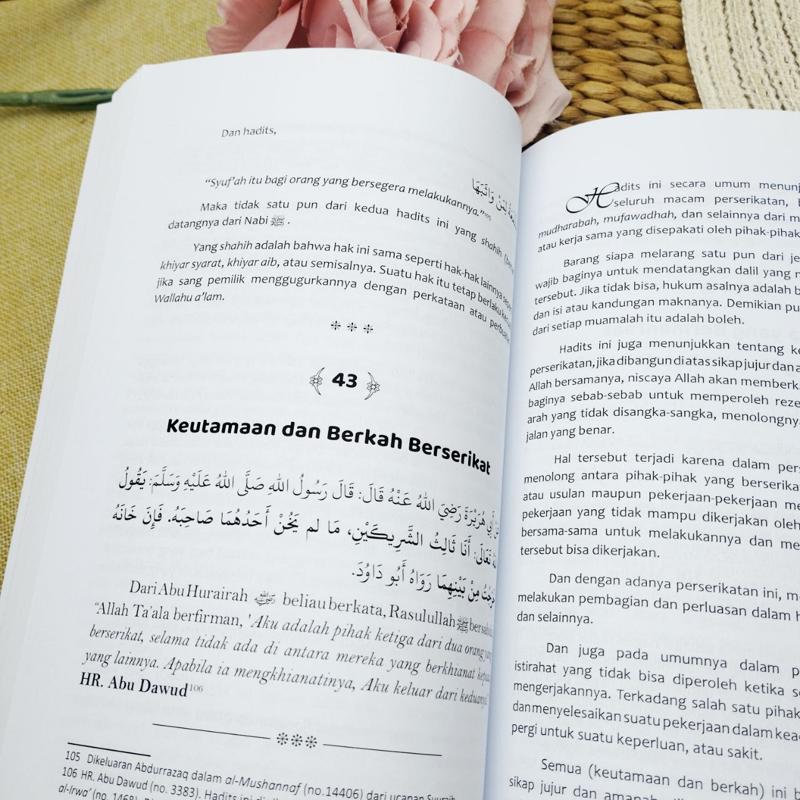 Dan hadits,
"Syuf'ah itu bagi orang yang bersegera melakukannya."105
Maka tidak satu pun dari kedua hadits ini yang shahih
datangnya dari Nabi ﷺ.
Yang shahih adalah bahwa hak ini sama seperti hak-hak lainnya
khiyar syarat, khiyar aib, atau semisalnya. Suatu hak itu tetap berlaku
jika sang pemilik menggugurkannya dengan perkataan atau
Wallahu a'lam.
43
Keutamaan dan Berkah Berserikat
أَبِي هُرَيْرَةَ رَضِيَ اللهُ عَنْهُ قَالَ: قَالَ رَسُولُ اللهِ صَلَّى اللهُ عَلَيْهِ وَسَلَّمَ: يَقُولُ
تَعَالَى: أَنَا ثَالِثُ الشَّرِيكَيْنِ، مَا لم يَخُنْ أَحَدُهُمَا صَاحِبَهُ. فَإِنْ خَانَهُ
مِنْ بَيْنِهِمَا رَوَاهُ أَبُو دَاوُدَ.
Dari Abu Hurairah beliau berkata, Rasulullah ﷺ
"Allah Ta'ala berfirman, 'Aku adalah pihak ketiga dari dua orang
berserikat, selama tidak ada di antara mereka yang berkhianat
yang lainnya. Apabila ia mengkhianatinya, Aku keluar dari
HR. Abu Dawud106
105 Dikeluaran Abdurrazaq dalam al-Mushannaf (no.14406) dari ucapan
106 HR. Abu Dawud (no. 3383). Hadits ini
al-Irwa' (no. 1468).
Hadits ini secara umum
seluruh macam perserikatan,
mudharabah, mufawadhah, dan selainnya dari
atau kerja sama yang disepakati oleh pihak-pihak
Barang siapa melarang satu pun dari
wajib baginya untuk mendatangkan dalil yang
tersebut. Jika tidak bisa, hukum asalnya adalah
dan isi atau kandungan maknanya. Demikian
dari setiap muamalah itu adalah boleh.
Hadits ini juga menunjukkan tentang
perserikatan, jika dibangun di atas sikap jujur dan
Allah bersamanya, niscaya Allah akan
baginya sebab-sebab untuk memperoleh
arah yang tidak disangka-sangka,
jalan yang benar.
Hal tersebut terjadi karena dalam
menolong antara pihak-pihak yang
atau usulan maupun pekerjaan-pekerjaan
pekerjaan yang tidak mampu dikerjakan oleh
bersama-sama untuk melakukannya dan
tersebut bisa dikerjakan.
Dan dengan adanya perserikatan ini,
melakukan pembagian dan perluasan dalam
dan selainnya.
Dan juga pada umumnya dalam
istirahat yang tidak bisa diperoleh ketika
mengerjakannya. Terkadang salah satu pihak
dan menyelesaikan suatu pekerjaan dalam
pergi untuk suatu keperluan, atau sakit.
Semua (keutamaan dan berkah) ini
sikap jujur dan